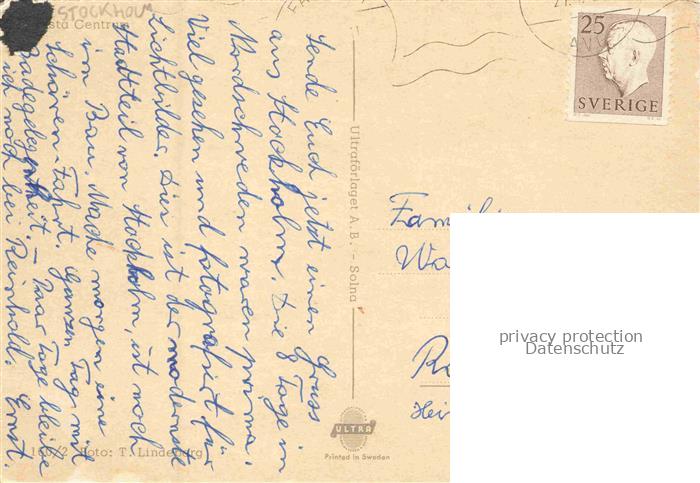 STOCKHOLM
Centrum
Sende Euch jetzt einen Gruss
aus Stockholm. Die 8 Tage in
Nordschweden waren prima.
Viel gesehen und fotografiert für
Lichtbilder. Dies ist der modernste
Stadtteil von Stockholm, ist noch
im Bau. Mache morgen eine
Schären-Fahrt. Ganzen Tag mit
Badegelegenheit. – Paar Tage bleibe
ich noch bei Reinhold. Ernst.
166/2 Foto: T. Lindeberg
Ultraförlaget A.B. - Solna
ULTRA
Printed in Sweden
25
SVERIGE
Famili
Wa
privacy protection
Datenschutz